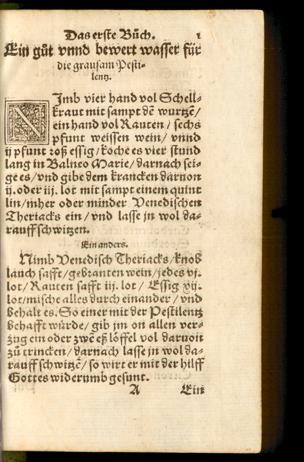 Das erste Buͤch. 1
Ein guͤt vnnd bewert wasser fuͤr
die grausam Pesti-
lentz.
NImb vier hand vol Schell-
kraut mit sampt dē wurtzē/
ein hand vol Rauten / sechs
pfunt weissen wein/ vnnd
ij pfunt roß essig/ koche es vier stund
lang in Balneo Marie/ darnach sei-
ge es/ vnd gibe dem krancken daruon
ij. oder iij. lot mit sampt einem quint
lin/ mher oder minder Venedischen
Theriacks ein / vnd lasse jn wol da-
rauff schwitzen.
Ein anders.
Nimb Venedisch Theriacks/ knob
lauch safft/ gebranten wein/ jedes vj.
lot/ Rauten safft iij. lot / Essig xij.
lot/ mische alles durch einander / vnd
behalt es. So einer mit der Pestilentz
behafft wuͤrde/ gib jm on allen ver-
zug ein oder zwē eßloͤffel vol daruon
zuͤ trincken/ darnach lasse jn wol da-
rauff schwitzē/ so wirt er mit der hilff
Gottes widerumb gesunt.
A Ein